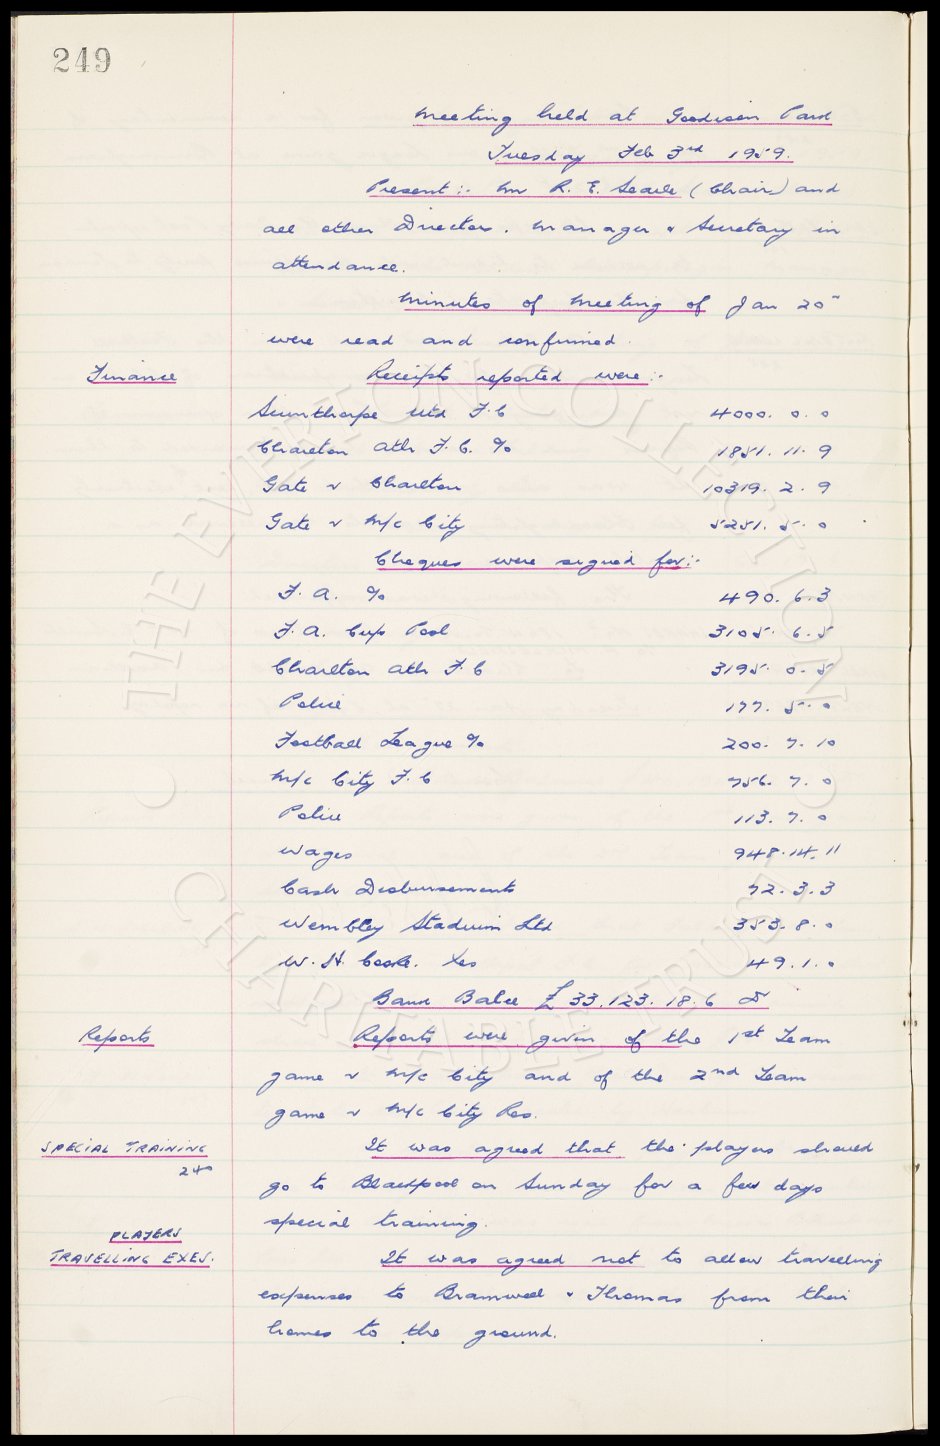 249
Meeting held at Goodison Park
Tuesday Feb 3rd 1959.
Present :- Mr R. E. Searle (Chair) and
all other Directors. Manager & Secretary in
attendance.
Minutes of Meeting of Jan 20th
were read and confirmed.
Finance Receipts reported were :-
Scunthorpe Utd F.C 4000. 0. 0
Charlton Ath F.C. % 1851. 11. 9
Gate v Charlton 10319. 2. 9
Gate v M/c City 5251. 5. 0
Cheques were signed for :-
F.A. % 490. 6. 3
F.A. Cup Pool 3105. 6. 5
Charlton Ath F.C 3195. 0. 5
Police 177. 5. 0
Football League % 200. 7. 10
M/c City F.C 756. 7. 0
Police 113. 7. 0
Wages 948. 14. 11
Cash Disbursements 72. 3. 3
Wembley Stadium Ltd 353. 8. 0
W. H. Cooke. 49. 1. 0
Bank Balce £33,123. 18. 6
Reports Reports were given of the 1st Team
game v M/c City and of the 2nd Team
game v M/c City Res.
SPECIAL TRAINING It was agreed that the players should
240
go to Blackpool on Sunday for a few days
special training.
PLAYERS
TRAVELLING EXES. It was agreed not to allow travelling
expenses to Bramwell & Thomas from their
homes to the ground.
THE EVERTON COLLECTION
CHARITABLE TRUST